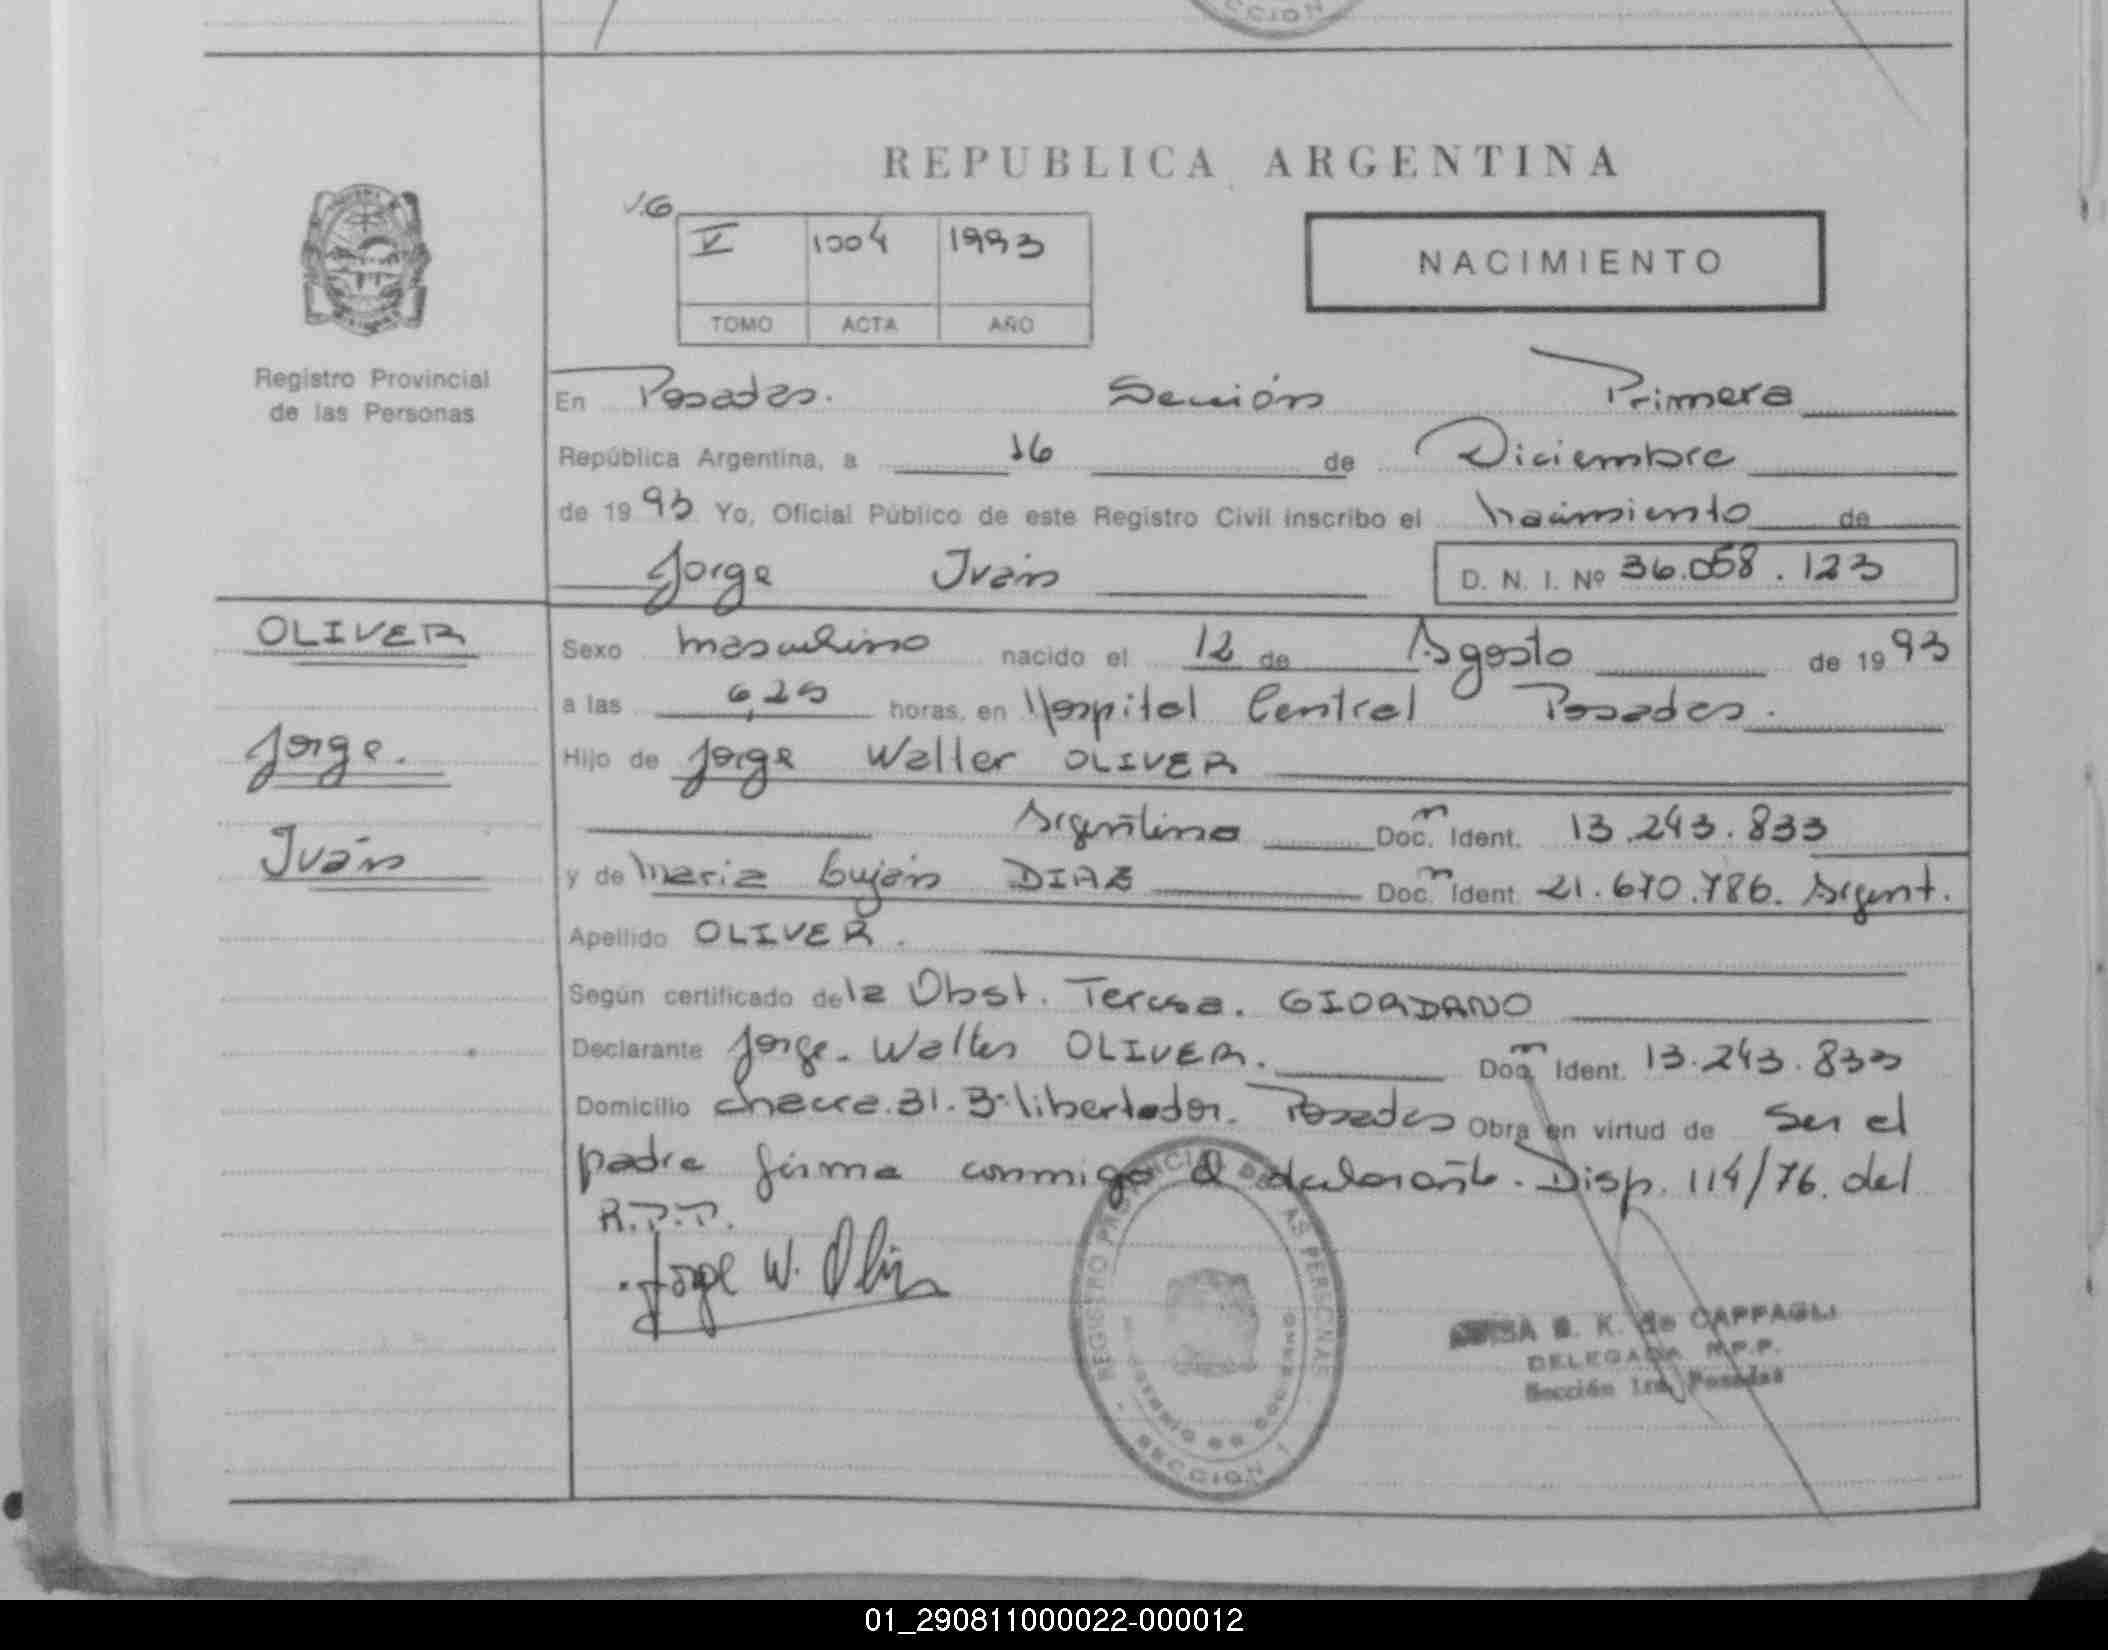 CCION
REPUBLICA ARGENTINA
16
V 1004 1993
TOMO ACTA AÑO
NACIMIENTO
Registro Provincial
de las Personas
En Posadas. Sección Primera
República Argentina, a 16 de Diciembre
de 1993 Yo, Oficial Público de este Registro Civil inscribo el nacimiento de
Jorge Iván D. N. I. Nº 36.058.123
OLIVER
Jorge.
Iván
Sexo masculino nacido el 12 de Agosto de 1993
a las 6,25 horas, en Hospital Central Posadas.
Hijo de Jorge Walter OLIVER
Argentino Doc. Ident. 13.243.833
y de Maria Luján DIAZ Doc. Ident. 21.670.786. Argent.
Apellido OLIVER.
Según certificado de la Obst. Teresa. GIORDANO
Declarante Jorge. Walter OLIVER. Doc. Ident. 13.243.833
Domicilio chacra.31.3- libertador. Posadas Obra en virtud de Ser el
padre firma conmigo el declarante. Disp. 114/76. del
R.P.P.
Jorge W. Oliver
REGISTRO PROVINCIAL DE LAS PERSONAS
MINISTERIO DE GOBIERNO
SECCION 1
S. K. de CAPPAGLI
DELEGADA R.P.P.
Sección 1ra. Posadas
01_290811000022-000012